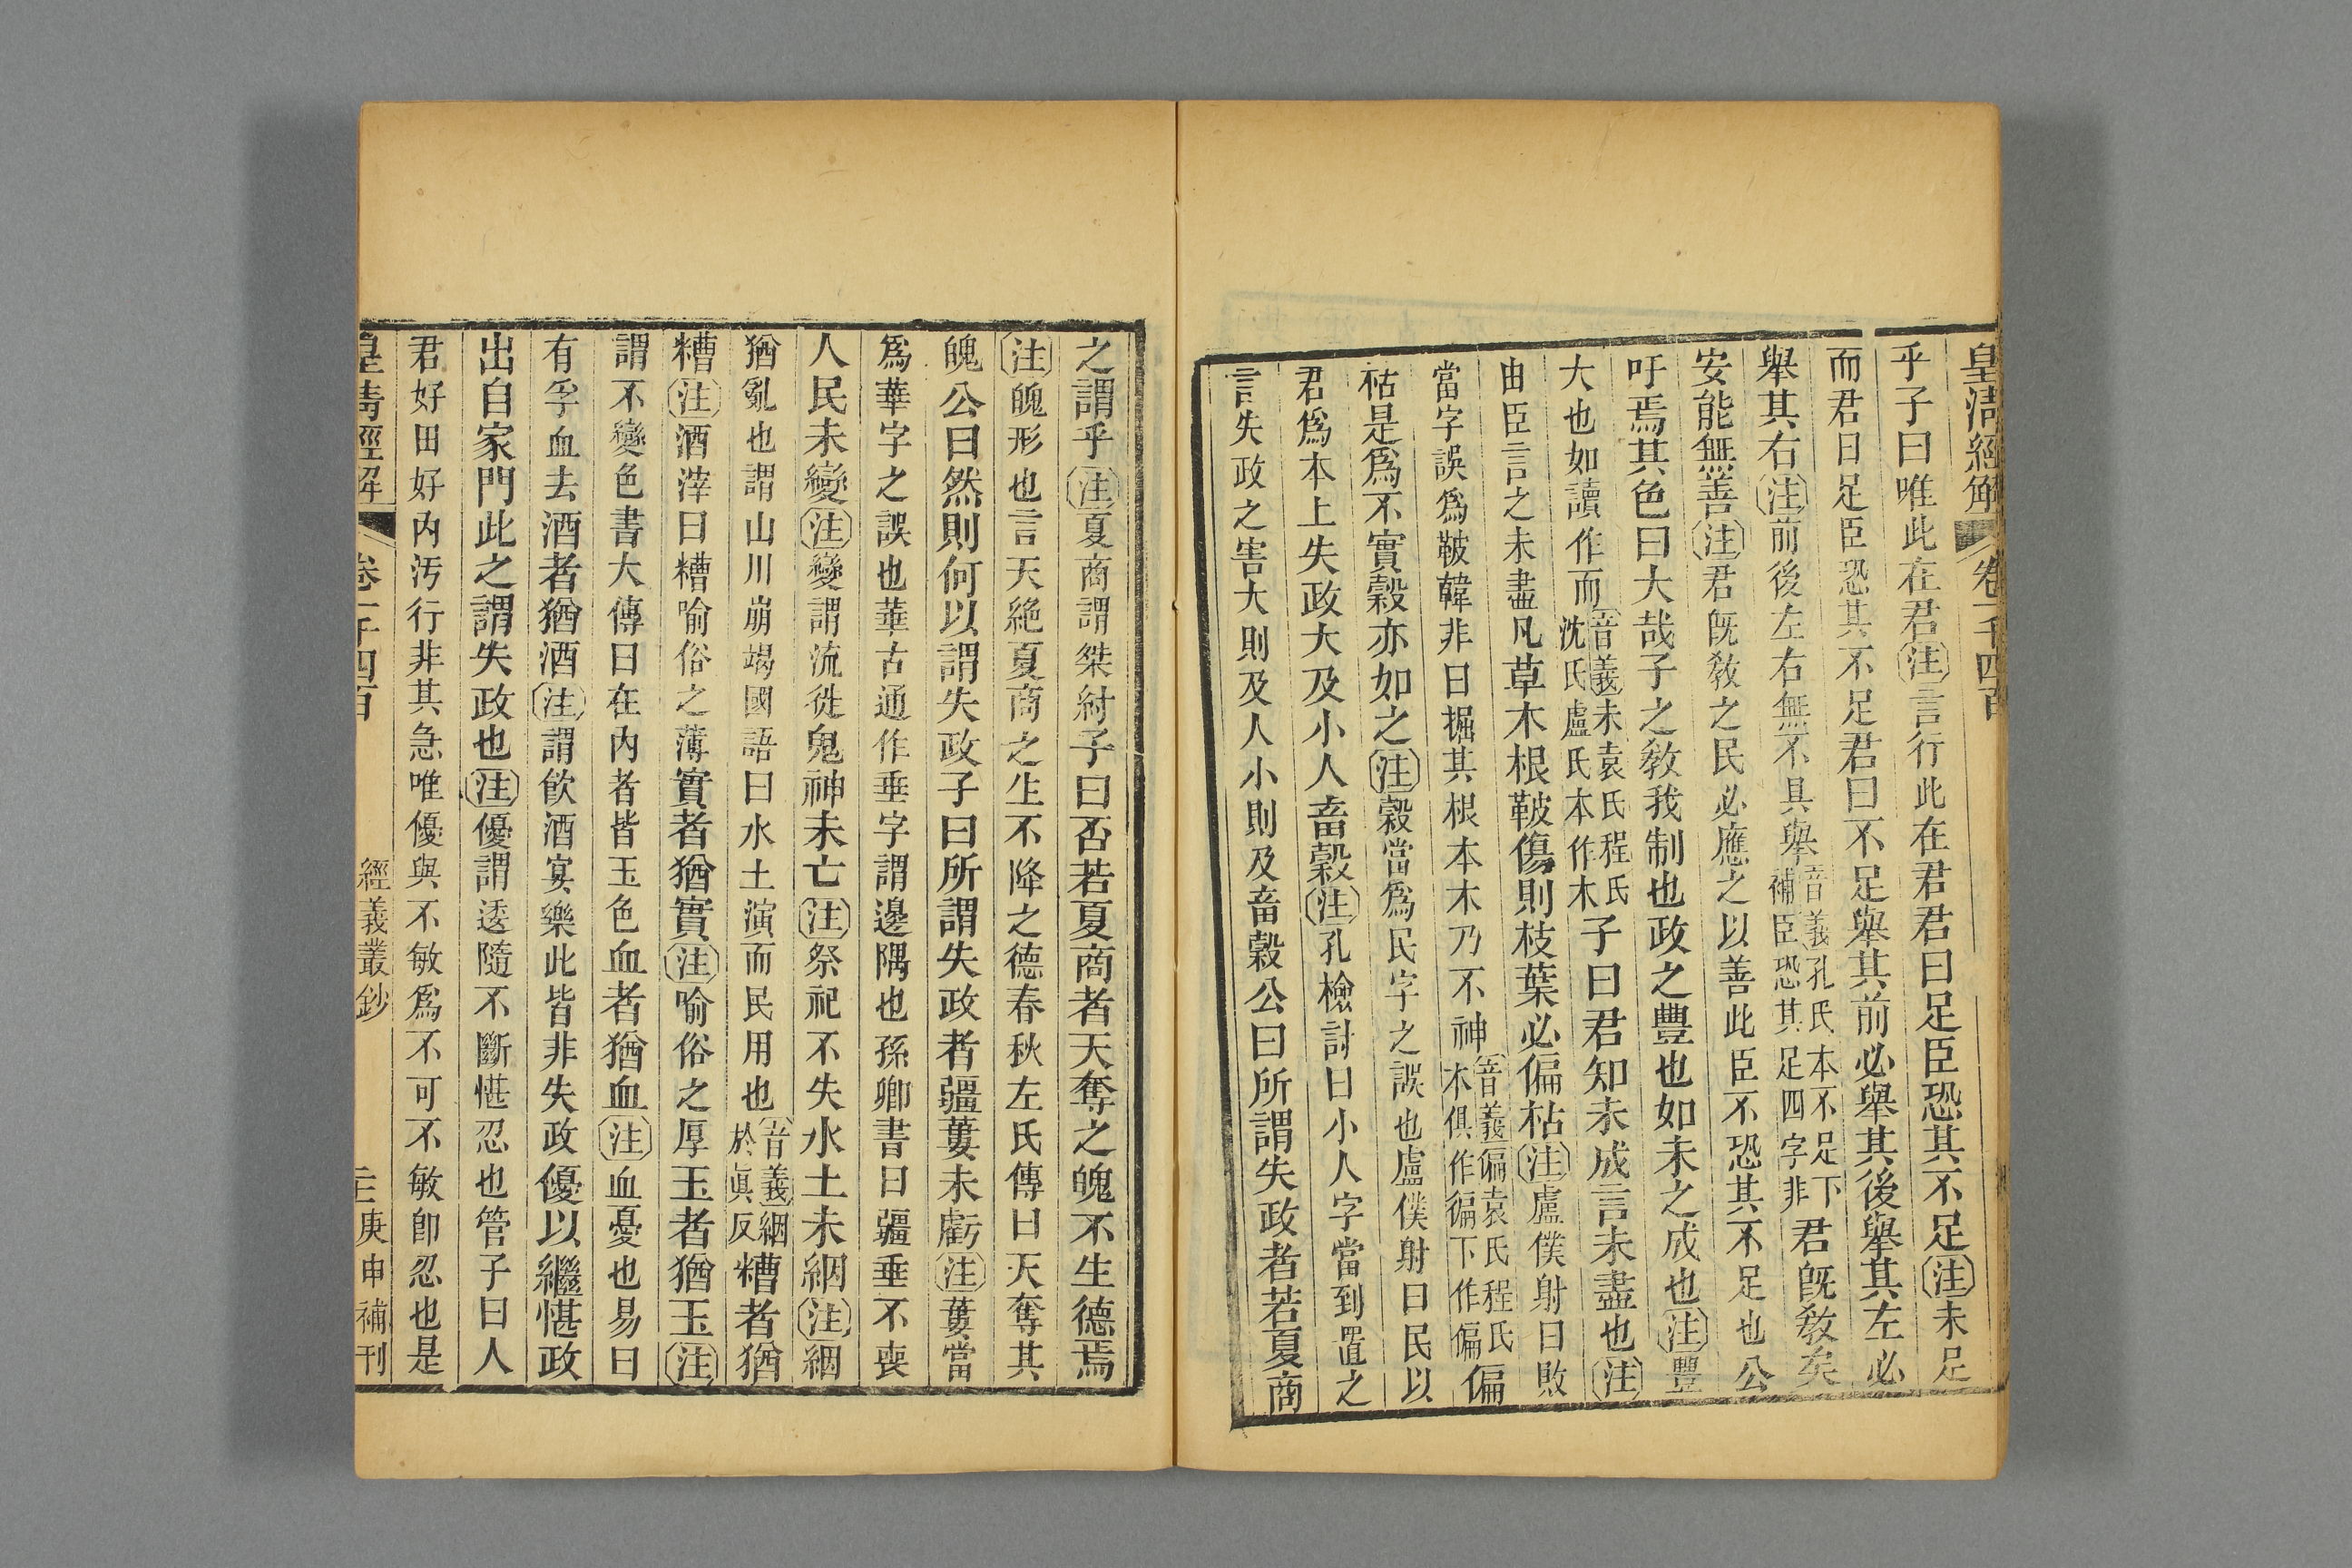 皇淸經解 卷一千四百
乎子曰唯此在君注言行此在君君曰足臣恐其不足注未足
而君曰足臣恐其不足君曰不足舉其前必舉其後舉其左必
舉其右注前後左右無不具舉音義孔氏本不足下補臣恐其足四字非君旣敎矣
安能無善注君旣敎之民必應之以善此臣不恐其不足也公
吁焉其色曰大哉子之敎我制也政之豐也如未之成也注豐
大也如讀作而音義未袁氏程氏沈氏盧氏本作木子曰君知未成言未盡也注
由臣言之未盡凡草木根鞁傷則枝葉必偏枯注盧僕射曰敗
當字誤爲鞁韓非曰掘其根本木乃不神音義偏袁氏程氏本俱作徧下作偏偏
祜是爲不實穀亦如之注穀當爲民字之誤也盧僕射曰民以
君爲本上失政大及小人畜穀注孔檢討曰小人字當到置之
言失政之害大則及人小則及畜穀公曰所謂失政者若夏商
之謂乎注夏商謂桀紂子曰否若夏商者天奪之魄不生德焉
注魄形也言天絶夏商之生不降之德春秋左氏傳曰天奪其
魄公曰然則何以謂失政子曰所謂失政者疆蔞未虧注蔞當
爲華字之誤也華古通作垂字謂邊隅也孫卿書曰疆垂不喪
人民未變注變謂流徙鬼神未亡注祭祀不失水土未絪注絪
猶亂也謂山川崩竭國語曰水土演而民用也音義絪於眞反糟者猶
糟注酒滓曰糟喻俗之薄實者猶實注喻俗之厚玉者猶玉注
謂不變色書大傳曰在內者皆玉色血者猶血注血憂也易曰
有孚血去酒者猶酒注謂飮酒宴樂此皆非失政優以繼愖政
出自家門此之謂失政也注優謂逶隨不斷愖忍也管子曰人
君好田好內汚行非其急唯優與不敏爲不可不敏卽忍也是
皇淸經解 卷一千四百 經義叢鈔 三 庚申補刊